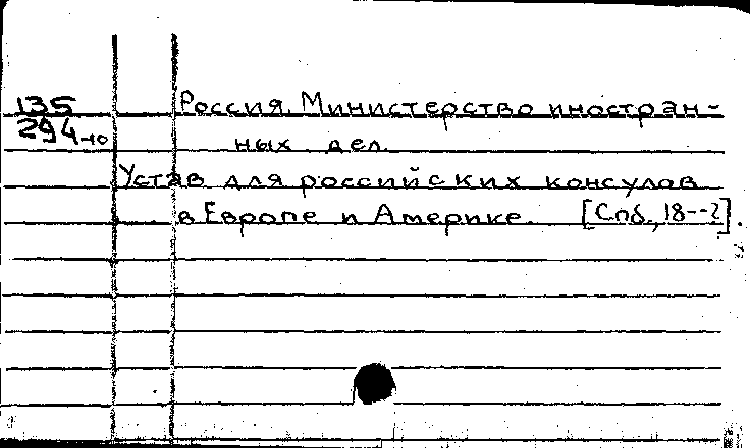 135
294-ю
Россия. Министерство иностран-
ных дел.
Устав для российских консулов
в Европе и Америке. [Спб., 18--?].